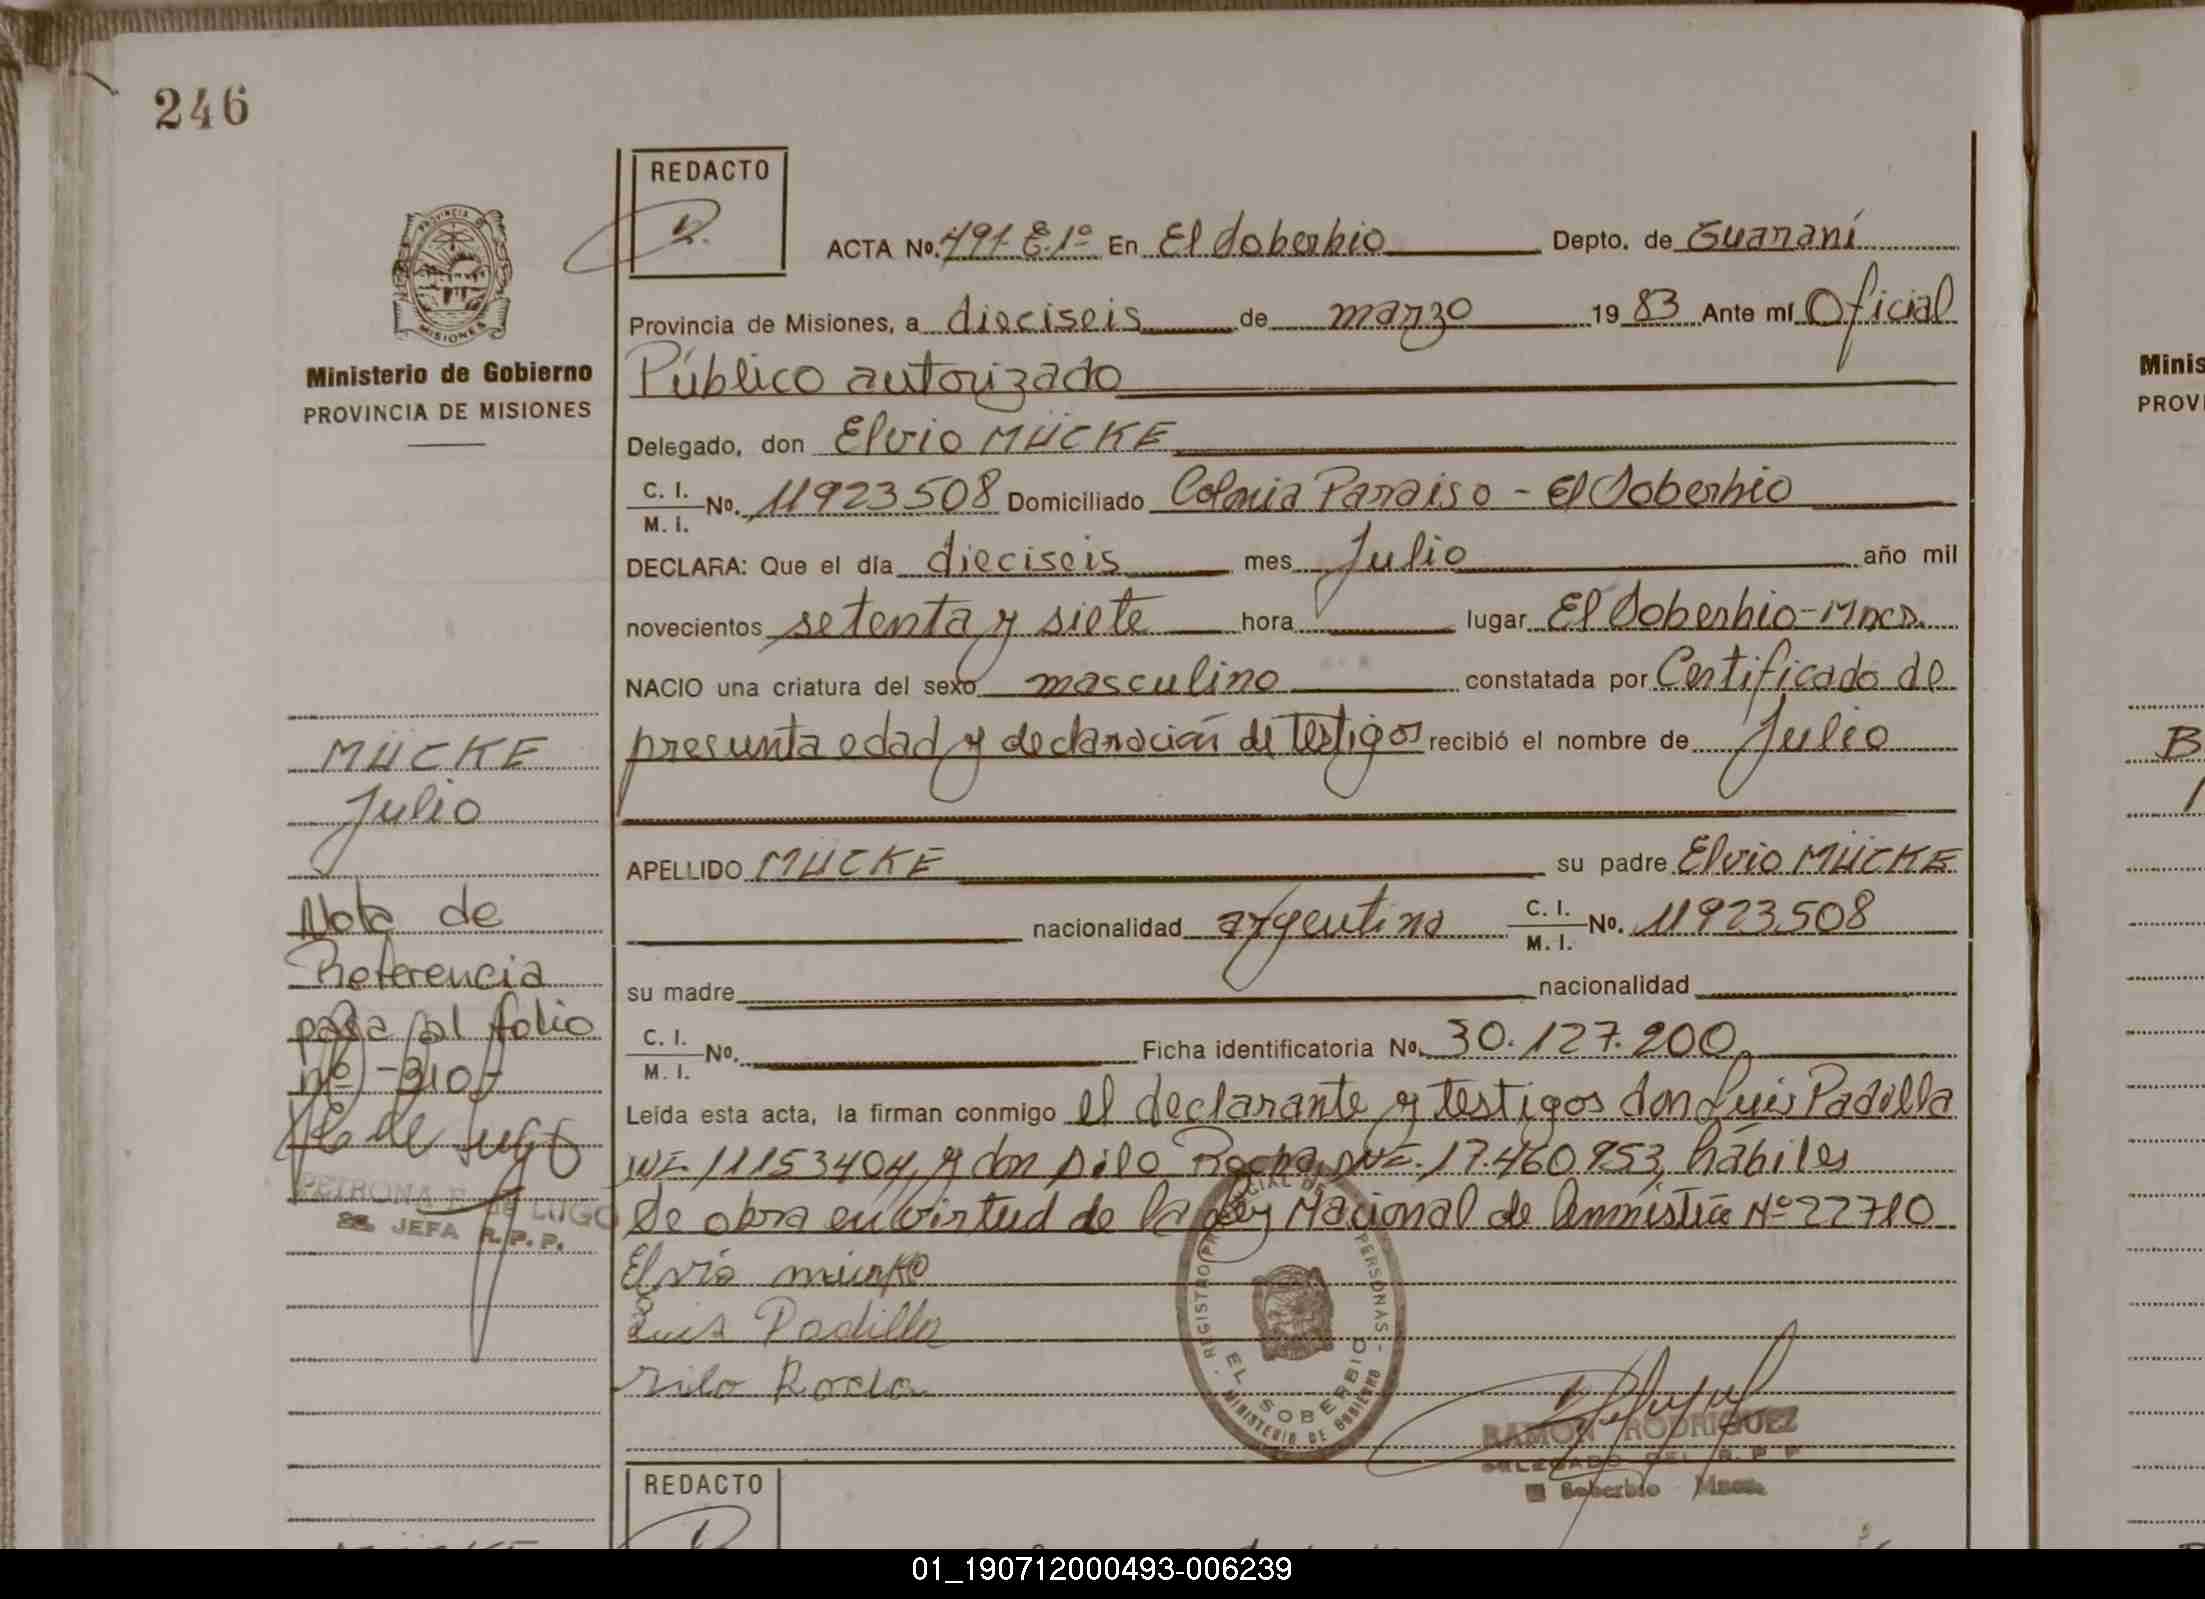 246
REDACTO
ACTA No. 491-E.1º En El Soberbio Depto. de Guaraní
Provincia de Misiones, a dieciseis de marzo 19 83 Ante mí Oficial
Público autorizado
Delegado, don Elvio MÜCKE
C. I.
M. I.
No. 11923508 Domiciliado Colonia Paraiso - El Soberbio
DECLARA: Que el día dieciseis mes Julio año mil
novecientos setenta y siete hora lugar El Soberbio-Mnes.
NACIO una criatura del sexo masculino constatada por Certificado de
presunta edad y declaración de testigos recibió el nombre de Julio
APELLIDO MÜCKE su padre Elvio MÜCKE
nacionalidad argentina C. I.
M. I. No. 11923.508
su madre nacionalidad
C. I.
M. I. No. Ficha identificatoria No. 30.127.200
Leída esta acta, la firman conmigo el declarante y testigos don Luis Padilla
11153404, y don Silo Rocha, 17.460.953, hábiles
Se obra en virtud de la Ley Nacional de Amnistía Nº 22710
Elvio
Luis Padilla
Silo Rocha
REGISTRO PROVINCIAL DE PERSONAS -
EL SOBERBIO
MINISTERIO DE GOBIERNO
RAMON RODRIGUEZ
DELEGADO DEL R. P. P.
El Soberbio Mnes.
REDACTO
PROVINCIA DE
MISIONES
Ministerio de Gobierno
PROVINCIA DE MISIONES
MÜCKE
Julio
Nota de
Referencia
pasa al folio
nº -310-
PETRONA de LUGO
JEFA R.P.P.
Minis
PROVI
B
01_190712000493-006239